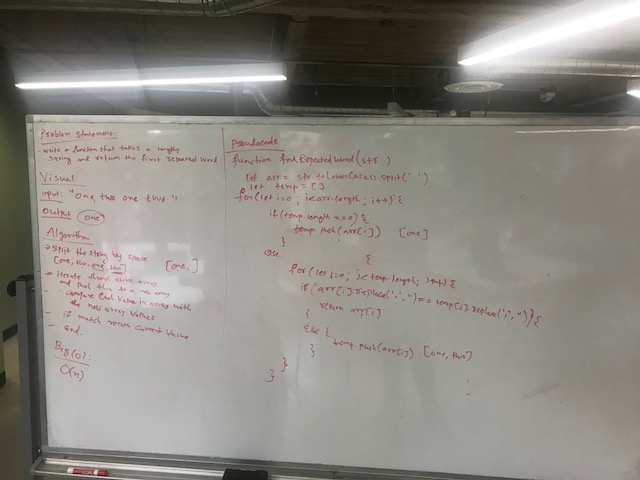 Problem Statement:
- Write a function that takes a lengthy
string and return the first repeated word
Visual
input: "One, two one three."
Output one
Algorithm
→ Split the string by space
[one, two, one, three] [one,]
→ iterate through above array
and push this to a new array
- compare each value in array with
the new array values
- if match return current value
- end.
Big(O):
O(n)
Pseudocode
function findRepeatedWord(str)
let arr = str.toLowerCase().split(' ')
let temp = [];
for(let i=0; i<arr.length; i++){
if(temp.length == 0){
temp.push(arr[i]) [one]
}
else {
for(let j=0; j<temp.length; j++){
if(arr[i].replace(',','')== temp[j].replace(',','')){
return arr[i]
}
else {
temp.push(arr[i]) [one, two]
}
}
}